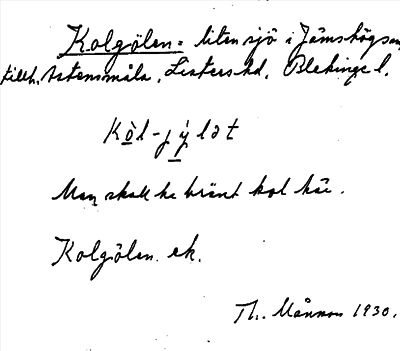 Kolgölen = liten sjö i Jämshögs sn,
tillh. Astensmåla, Listers hd, Blekinge l.
Kòl-jỳlət
Man skall ha bränt kol här.
Kolgölen. ek.
Th. Månsson 1930.